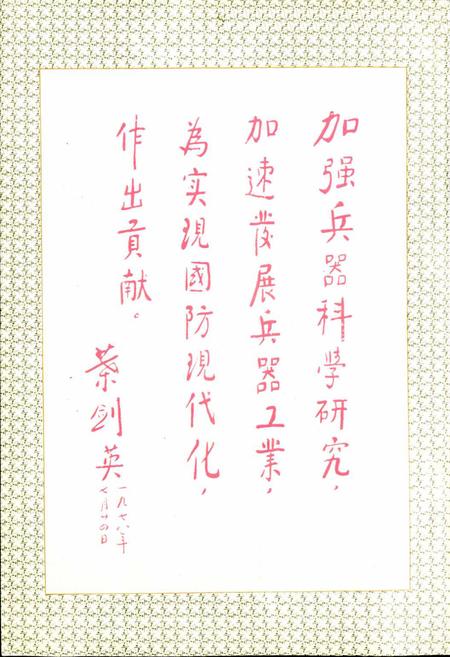 加强兵器科學研究，
加速發展兵器工業，
為实現國防現代化，
作出貢献。
葉剑英
一九七八年
七月廿四日